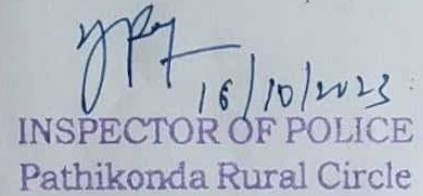 16/10/2023
INSPECTOR OF POLICE
Pathikonda Rural Circle